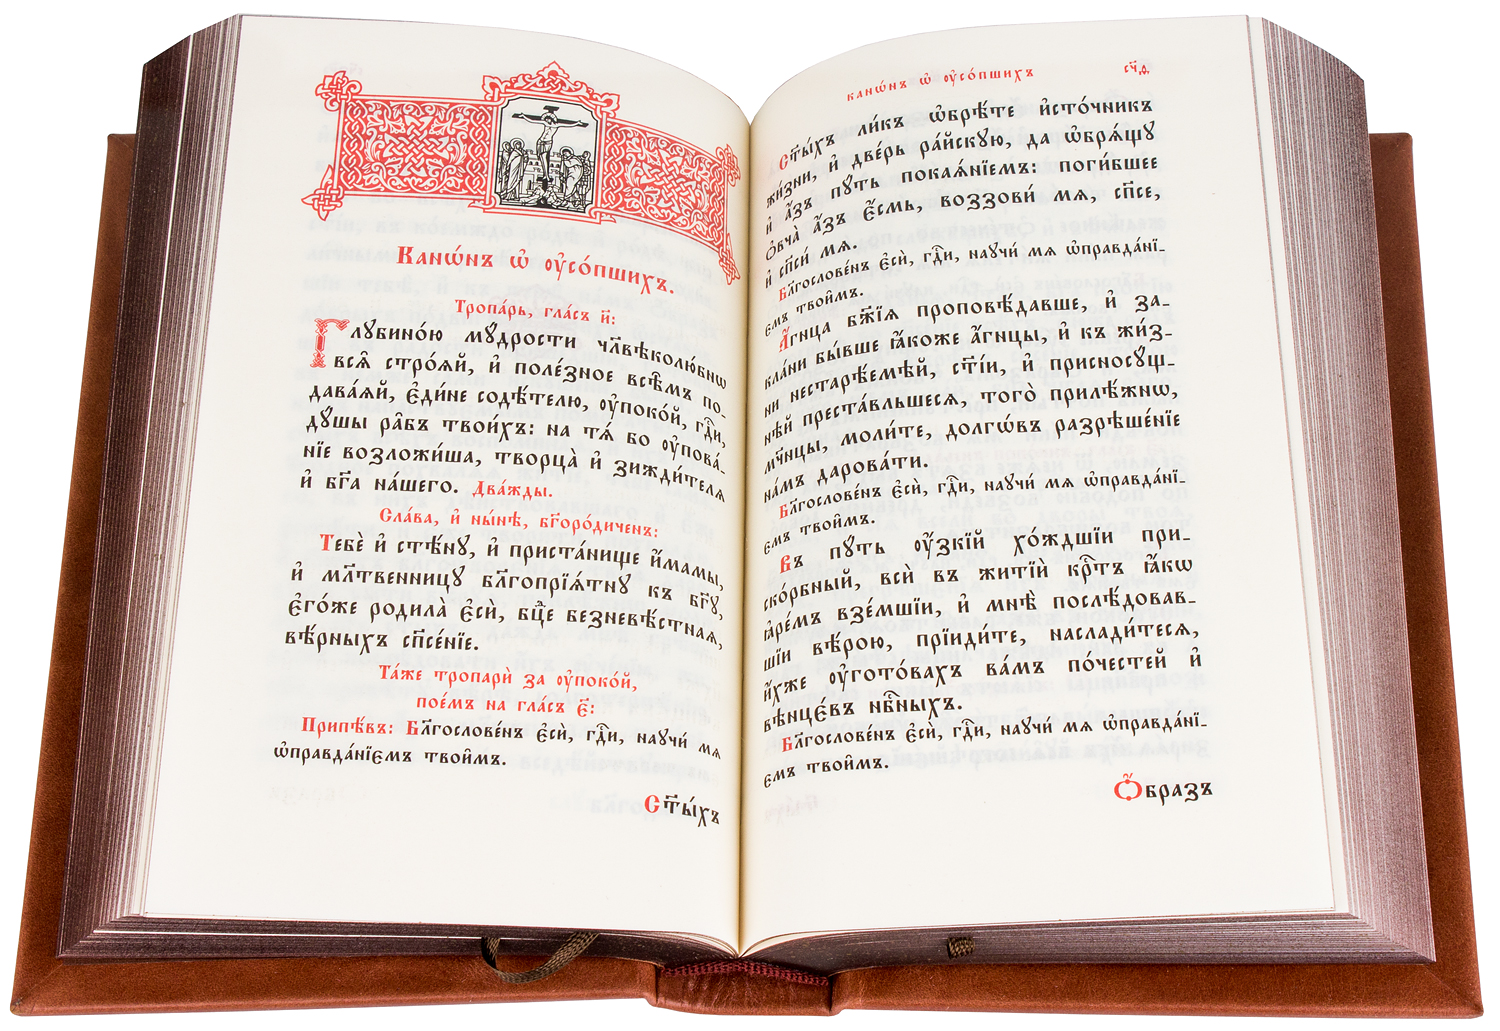 Канѡ́нъ ѡ҆ ᲂу҆со́пшихъ.
Тропа́рь, гла́съ и҃:
Глꙋбино́ю мꙋ́дрости чл҃вѣколю́бнѡ
всѧ̑ стро́ѧй, и҆ поле́зное всѣ̑мъ по-
дава́ѧй, є҆ди́не содѣ́телю, ᲂу҆поко́й, гдⷭ҇и,
дꙋ́шы ра̑бъ твои́хъ: на тѧ́ бо ᲂу҆пова́-
нїе возложи́ша, творца̀ и҆ зижди́телѧ
и҆ бг҃а на́шего. Два́жды.
Сла́ва, и҆ ны́нѣ, бг҃оро́диченъ:
Тебѐ и҆ стѣ́нꙋ, и҆ приста́нище и҆́мамы,
и҆ мл҃твенницꙋ бл҃гопрїѧ́тнꙋ къ бг҃ꙋ,
є҆го́же родила̀ є҆сѝ, бцⷣе безневѣ́стнаѧ,
вѣ́рныхъ сп҃се́нїе.
Та́же тропарѝ за ᲂу҆поко́й,
пое́мъ на гла́съ є҃:
Припѣ́въ: Бл҃гослове́нъ є҆сѝ, гдⷭ҇и, наꙋчи́ мѧ
ѡ҆правда́нїємъ твои̑мъ.
Ст҃ы́хъ
канѡ́нъ ѡ҆ ᲂу҆со́пшихъ
сч҃д
Ст҃ы́хъ ли́къ ѡ҆брѣ́те и҆сто́чникъ
жи́зни, и҆ две́рь ра́йскꙋю, да ѡ҆брѧ́щꙋ
и҆ а҆́зъ пꙋ́ть покаѧ́нїемъ: поги́бшее
ѻ҆вча̀ а҆́зъ є҆́смь, воззови́ мѧ, сп҃се,
и҆ сп҃си́ мѧ.
Бл҃гослове́нъ є҆сѝ, гдⷭ҇и, наꙋчи́ мѧ ѡ҆правда́нї-
ємъ твои̑мъ.
А҆́гнца бж҃їѧ проповѣ́давше, и҆ за-
кла́ни бы́вше ꙗ҆́коже а҆́гнцы, и҆ къ жи́з-
ни нестарѣ́емѣй, ст҃і́и, и҆ присносꙋ́щ-
нѣй преста́вльшесѧ, того̀ прилѣ́жнѡ,
мч҃нцы, моли́те, долгѡ́въ разрѣше́нїе
на́мъ дарова́ти.
Бл҃гослове́нъ є҆сѝ, гдⷭ҇и, наꙋчи́ мѧ ѡ҆правда́нї-
ємъ твои̑мъ.
Въ пꙋ́ть ᲂу҆́зкїй хо́ждшїи при-
ско́рбный, всѝ въ житїѝ крⷭ҇тъ ꙗ҆́кѡ
ꙗ҆ре́мъ взе́мшїи, и҆ мнѣ̀ послѣ́довав-
шїи вѣ́рою, прїиди́те, наслади́тесѧ,
и҆́хже ᲂу҆гото́вахъ ва́мъ по́честей и҆
вѣнцє́въ нбⷭ҇ныхъ.
Бл҃гослове́нъ є҆сѝ, гдⷭ҇и, наꙋчи́ мѧ ѡ҆правда́нї-
ємъ твои̑мъ.
Ѻ҆́бразъ